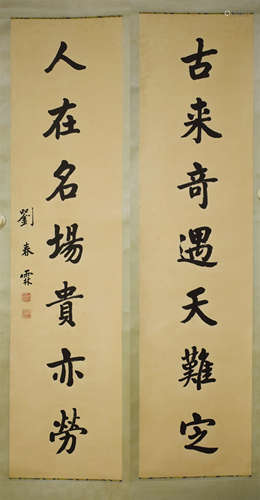 古来奇遇天難定
人在名場貴亦勞
劉春霖